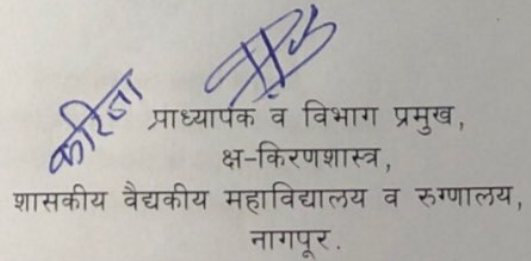 करिता
प्राध्यापक व विभाग प्रमुख,
क्ष-किरणशास्त्र,
शासकीय वैद्यकीय महाविद्यालय व रुग्णालय,
नागपूर.